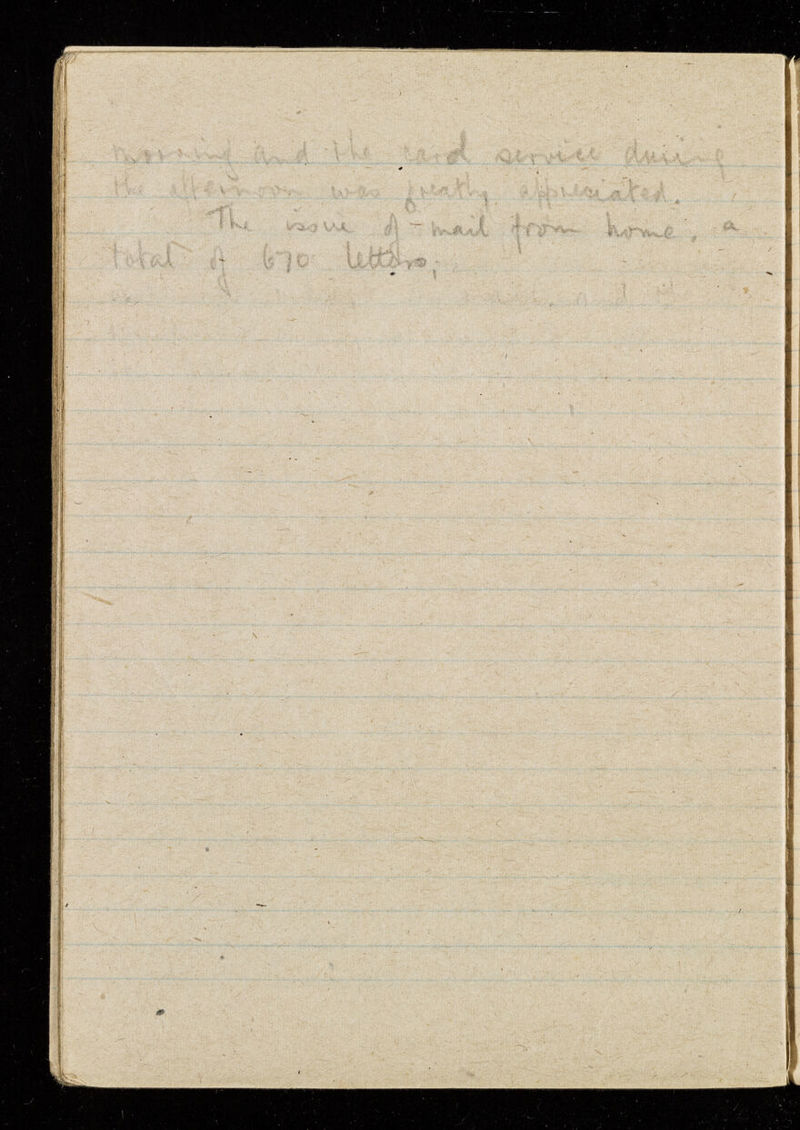 morning and the card service during
the afternoon was greatly appreciated.
The issue of mail from home, a
total of 670 letters,